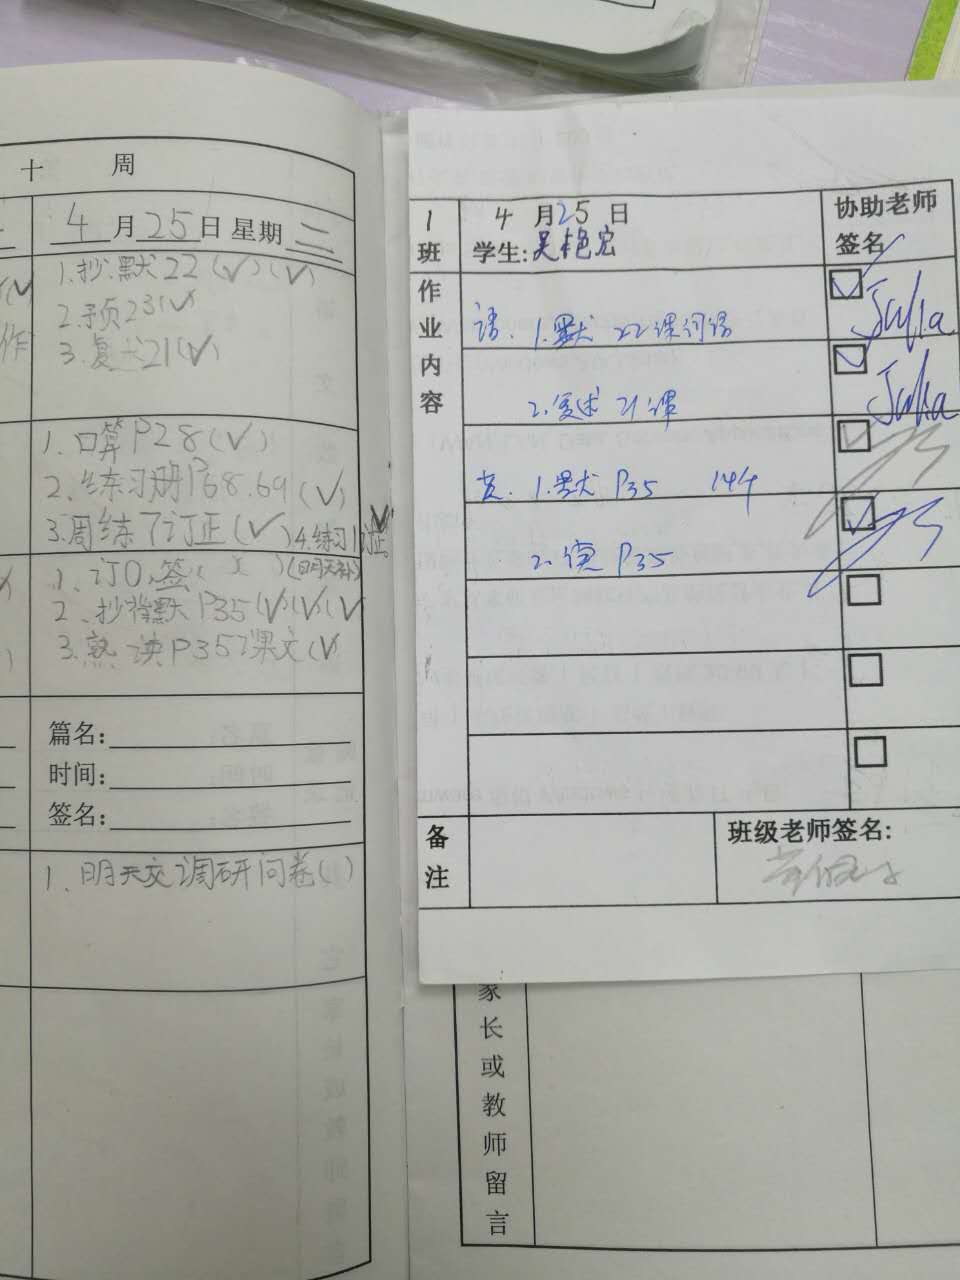 十 周
4月25日 星期三
1.抄.默22(✓)(✓)
2.预23(✓
3.复犬21(✓)
作
1.口算P28(✓)
2.练习册P68.69(✓)
3.周练7订正(✓)4.练习1
1.订0.签( X )(明天补)
2.抄背默P35(✓)(✓)(✓
3.熟读P35课文(✓
篇名:
时间:
签名:
1.明天交调研问卷( )
1班
4月25日
学生:
协助老师签名
作业内容
语: 1.默 22课词语
Julia
2.复述 21课
Julia
英: 1.默 P35
2.读 P35
备注
班级老师签名:
家长或教师留言